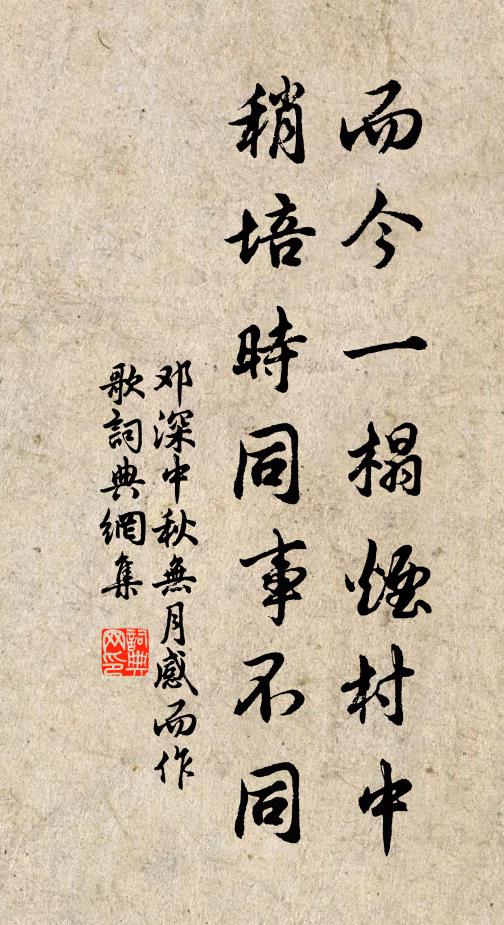 而今一榻煙村中
稍培時同事不同
邓深中秋無月感而作
歌詞典網集
詞典网印